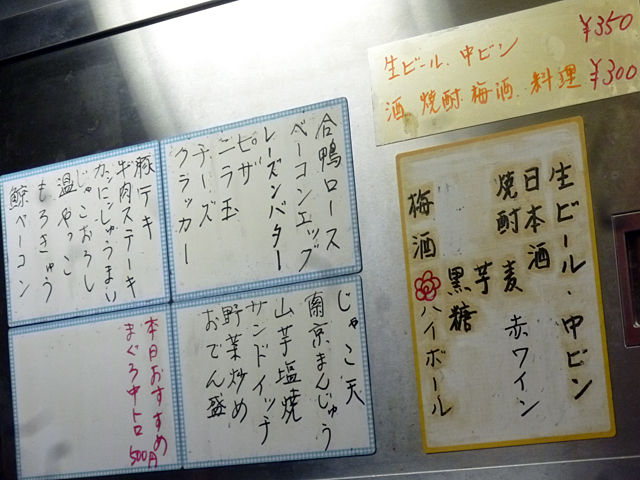 生ビール、中ビン ¥350
酒、焼酎、梅酒、料理 ¥300
生ビール・中ビン
日本酒
焼酎 麦 赤ワイン
芋
黒糖
梅酒 ハイボール
合鴨ロース
ベーコンエッグ
レーズンバター
ピザ
ニラ玉
チーズ
クラッカー
豚テキ
牛肉ステーキ
カニしゅうまい
じゃこおろし
温やっこ
もろきゅう
鯨ベーコン
じゃこ天
南京まんじゅう
山芋塩焼
サンドイッチ
野菜炒め
おでん盛
本日おすすめ
まぐろ中トロ
500円